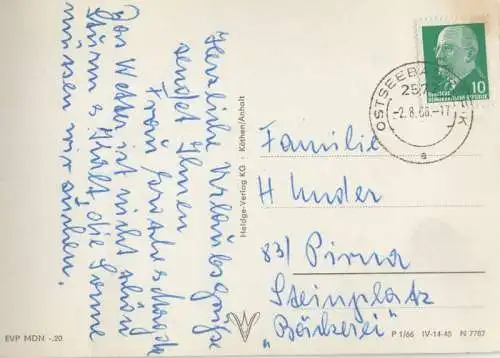 Herzliche Urlaubsgrüße
sendet Ihnen
Frau
Das Wetter ist nicht schön
Sturm & kalt, die Sonne
müssen wir suchen.
Heldge-Verlag KG · Köthen/Anhalt
OSTSEEBAD
-2.8.66.-17
a
10
Familie
H
83/ Pirna
Steinplatz
"Bäckerei"
EVP MDN -.20
P 1/66 IV-14-45 N 7787